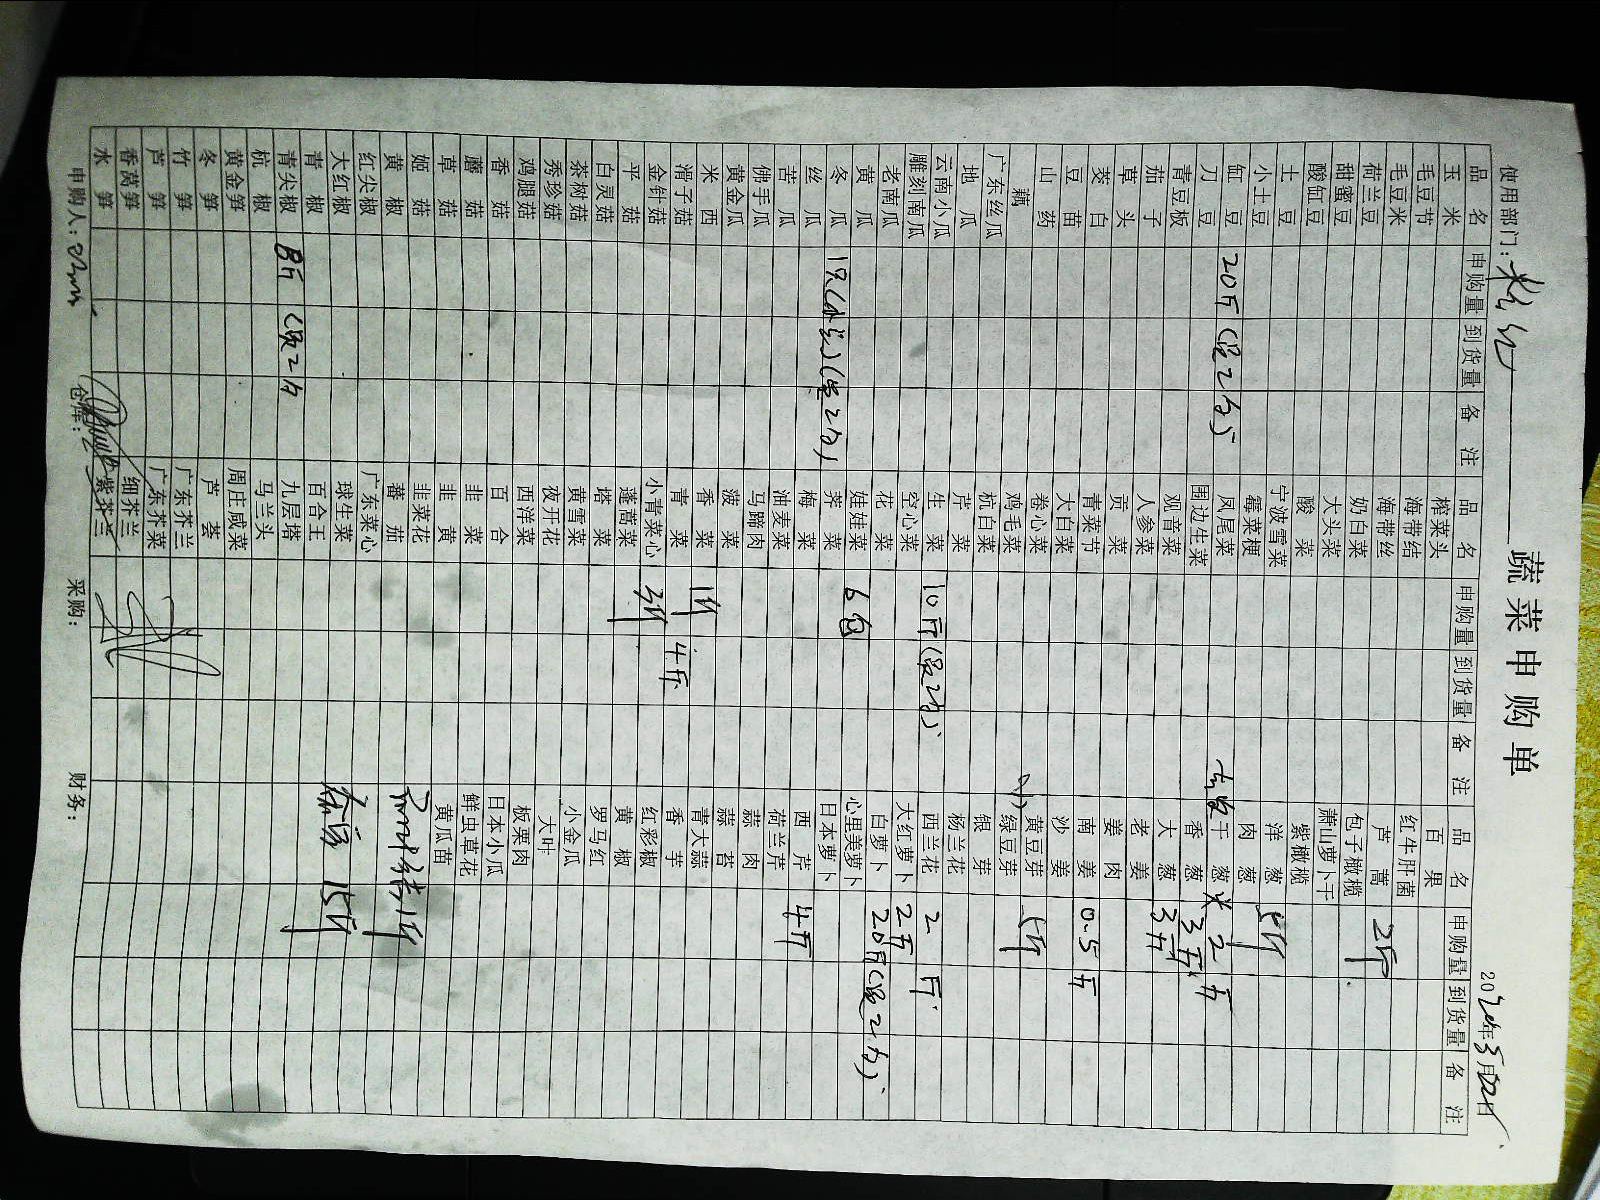 蔬菜申购单
使用部门: 2020年5月22日
品名 申购量 到货量 备注 品名 申购量 到货量 备注 品名 申购量 到货量 备注
玉米 榨菜头 百果
毛豆节 海带结 红牛肝菌
毛豆米 海带丝 芦蒿 2斤
荷兰豆 奶白菜 包子橄榄
甜蜜豆 大头菜 萧山萝卜干
酸缸豆 酸菜 紫橄榄
土豆 宁波雪菜 洋葱 5斤
小土豆 霉菜梗 肉葱
缸豆 20斤(分2份) 凤尾菜 干葱 2斤
刀豆 围边生菜 香葱 3斤
青豆板 观音菜 大葱 3斤
茄子 人参菜 老姜
草头 贡菜 姜肉
茭白 青菜节 南姜 0.5斤
豆苗 大白菜 沙姜
山药 卷心菜 黄豆芽 5斤
藕 鸡毛菜 绿豆芽
广东丝瓜 杭白菜 银芽
地瓜 芹菜 杨兰花
云南小瓜 生菜 10斤(分2份) 西兰花 2斤
雕刻南瓜 空心菜 大红萝卜 2斤
老南瓜 花菜 白萝卜 20斤(分2份)
黄瓜 娃娃菜 6包 心里美萝卜
冬瓜 1只 (分2份) 荠菜 日本萝卜
丝瓜 梅菜 西芹 4斤
苦瓜 油麦菜 荷兰芹
佛手瓜 马蹄肉 蒜肉
黄金瓜 菠菜 蒜苔
米西 香菜 1斤 青大蒜
滑子菇 青菜 4斤 香芋
金针菇 小青菜心 3斤 红彩椒
平菇 蓬蒿菜 黄椒
白灵菇 塔菜 罗马红
茶树菇 黄雪菜 小金瓜
秀珍菇 夜开花 大叶
鸡腿菇 西洋菜 板栗肉
香菇 百合 日本小瓜
蘑菇 韭菜 鲜虫草花
草菇 韭黄 黄瓜苗
姬菇 韭菜花 1斤
黄椒 蕃茄
红尖椒 广东菜心
大红椒 球生菜 15斤
青椒 百合王
青尖椒 8斤 (分2份 九层塔
杭椒 马兰头
黄金笋 周庄咸菜
冬笋 芦荟
竹笋 广东芥兰
芦笋 广东芥菜
香莴笋 细芥兰
水笋 紫芥兰
申购人: 仓库: 采购: 财务: